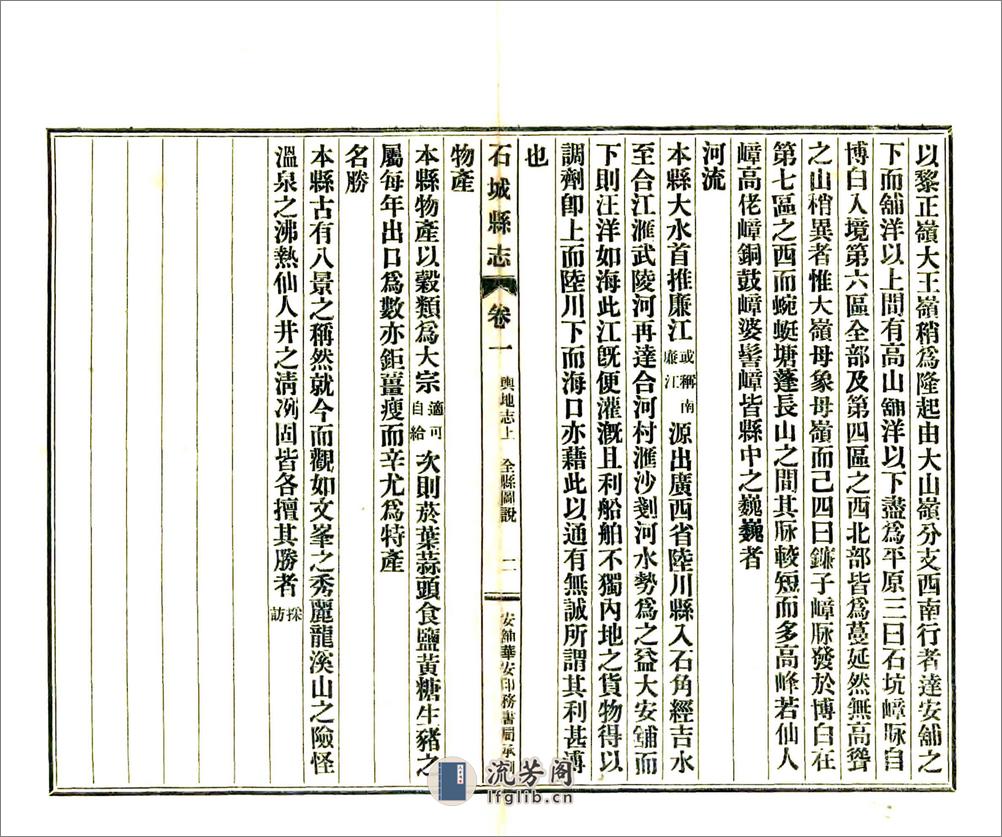 以黎正嶺大王嶺稍爲隆起由大山嶺分支西南行者達安舖之
下而舖洋以上間有高山舖洋以下盡爲平原三曰石坑嶂脉自
博白入境第六區全部及第四區之西北部皆爲蔓延然無高聳
之山稍異者惟大嶺母象母嶺而己四曰鐮子嶂脉發於博白在
第七區之西而蜿蜒塘蓬長山之間其脉較短而多高峰若仙人
嶂高佬嶂銅鼓嶂婆髻嶂皆縣中之巍巍者
河流
本縣大水首推廉江或稱南廉江源出廣西省陸川縣入石角經吉水
至合江滙武陵河再達合河村滙沙剗河水勢爲之益大安舖而
下則汪洋如海此江旣便灌漑且利船舶不獨內地之貨物得以
調劑卽上而陸川下而海口亦藉此以通有無誠所謂其利甚溥
也
石城縣志 卷一 輿地志上 全縣圖說 二 安舖華安印務書局承刊
物產
本縣物產以穀類爲大宗適可自給次則菸葉蒜頭食鹽黃糖生豬之
屬每年出口爲數亦鉅薑瘦而辛尤爲特產
名勝
本縣古有八景之稱然就今而觀如文峯之秀麗龍溪山之險怪
溫泉之沸熱仙人井之淸冽固皆各擅其勝者採訪
流芳阁
lfglib.cn